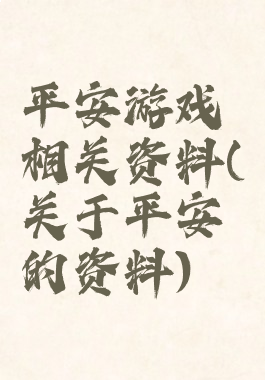 平安游戏
相关资料(
关于平安
的资料)